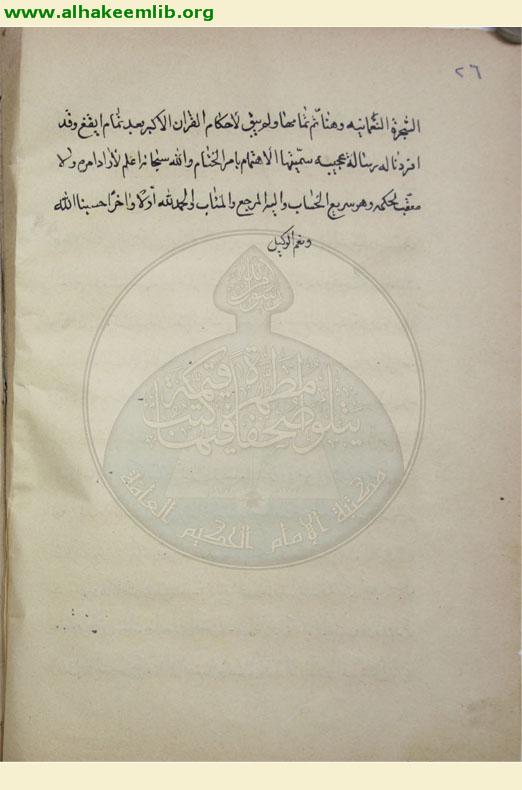 www.alhakeemlib.org
٢٦
الشجرة النعمانيه وهنا تم تمامها ولم يبقى لاحكام القران الاكبر بعد تمام ايقغ وقد
افردنا له رسالة عجيبه سميتها الاهتمام بامر الختام والله سبحانه اعلم لا راد لامره ولا
معقب لحكمه وهو سريع الحساب واليه المرجع والمتاب والحمد لله أولا وآخرا حسبنا الله
ونعم الوكيل
رسول من الله
يتلو صحفا مطهرة فيها كتب قيمة
مكتبة الإمام الحكيم العامة